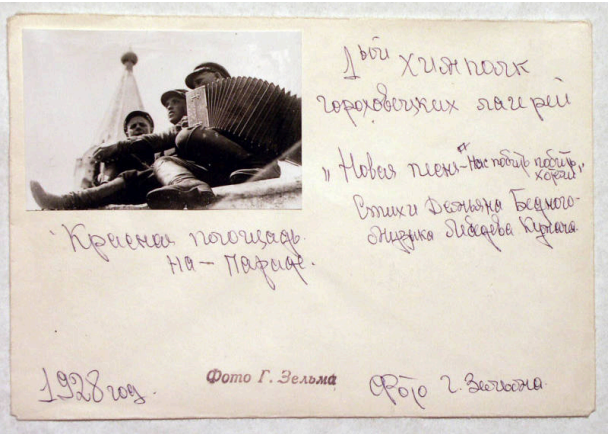 1ый химполк
гороховецких лагерей
"Новая песня-"Нас побить побить
хотели"
Стихи Демьяна Бедного-
Музыка Лебедева Кумача.
Красная площадь.
на-Параде.
1928 год.
Фото Г. Зельма
Фото Г. Зельмана.